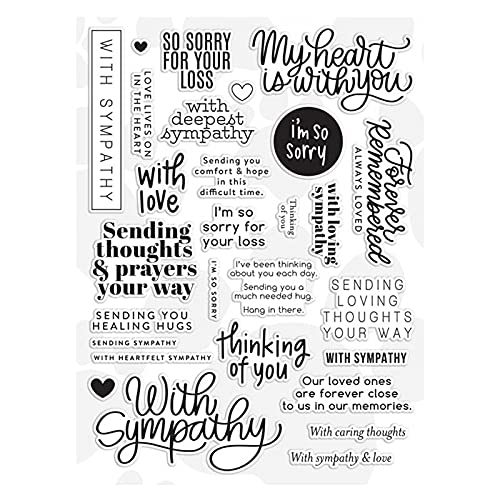 WITH SYMPATHY
LOVE LIVES ON
IN THE HEART
SO SORRY
FOR YOUR
LOSS
My heart
is with you
with
deepest
sympathy
i'm so
sorry
Forever
Remembered
ALWAYS LOVED
with
love
Sending you
comfort & hope
in this
difficult time.
I'm so
sorry for
your loss
Thinking
of you
with loving
sympathy
Sending
thoughts
& prayers
your way
I'M SO SORRY
I've been thinking
about you each day.
Sending you a
much needed hug.
Hang in there.
SENDING
LOVING
THOUGHTS
YOUR WAY
SENDING YOU
HEALING HUGS
SENDING SYMPATHY
WITH HEARTFELT SYMPATHY
thinking
of you
WITH SYMPATHY
With
Sympathy
Our loved ones
are forever close
to us in our memories.
With caring thoughts
With sympathy & love